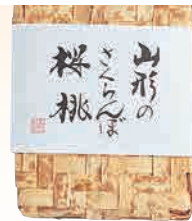 山形の
さくらんぼ
桜桃